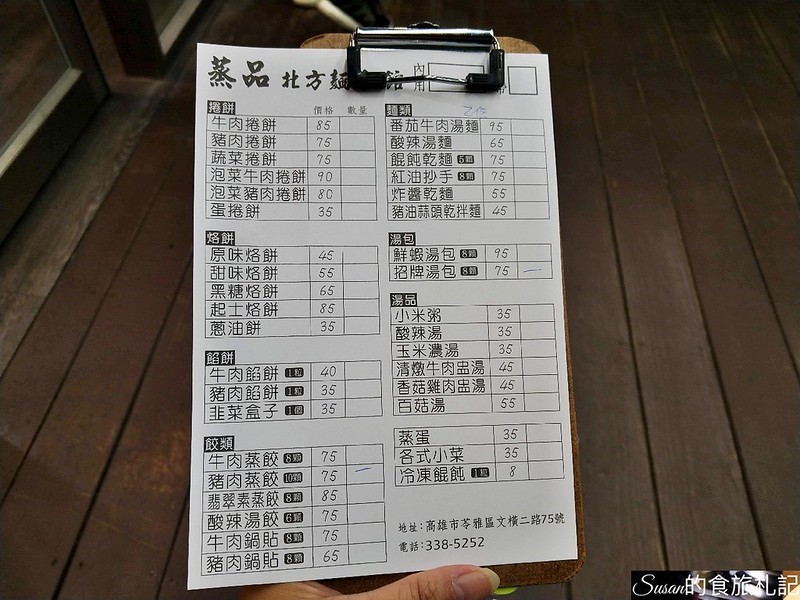 蒸品 北方麵 館
內用
捲餅 價格 數量
牛肉捲餅 85
豬肉捲餅 75
蔬菜捲餅 75
泡菜牛肉捲餅 90
泡菜豬肉捲餅 80
蛋捲餅 35
烙餅
原味烙餅 45
甜味烙餅 55
黑糖烙餅 65
起士烙餅 85
蔥油餅 35
餡餅
牛肉餡餅 1粒 40
豬肉餡餅 1粒 35
韭菜盒子 1個 35
餃類
牛肉蒸餃 8顆 75
豬肉蒸餃 10顆 75
翡翠素蒸餃 8顆 85
酸辣湯餃 6顆 75
牛肉鍋貼 8顆 75
豬肉鍋貼 8顆 65
麵類
番茄牛肉湯麵 95
酸辣湯麵 65
餛飩乾麵 6顆 75
紅油抄手 8顆 75
炸醬乾麵 55
豬油蒜頭乾拌麵 45
湯包
鮮蝦湯包 8顆 95
招牌湯包 8顆 75
湯品
小米粥 35
酸辣湯 35
玉米濃湯 35
清燉牛肉盅湯 45
香菇雞肉盅湯 45
百菇湯 55
蒸蛋 35
各式小菜 35
冷凍餛飩 1粒 8
地址:高雄市苓雅區文橫二路75號
電話:338-5252
Susan的食旅札記